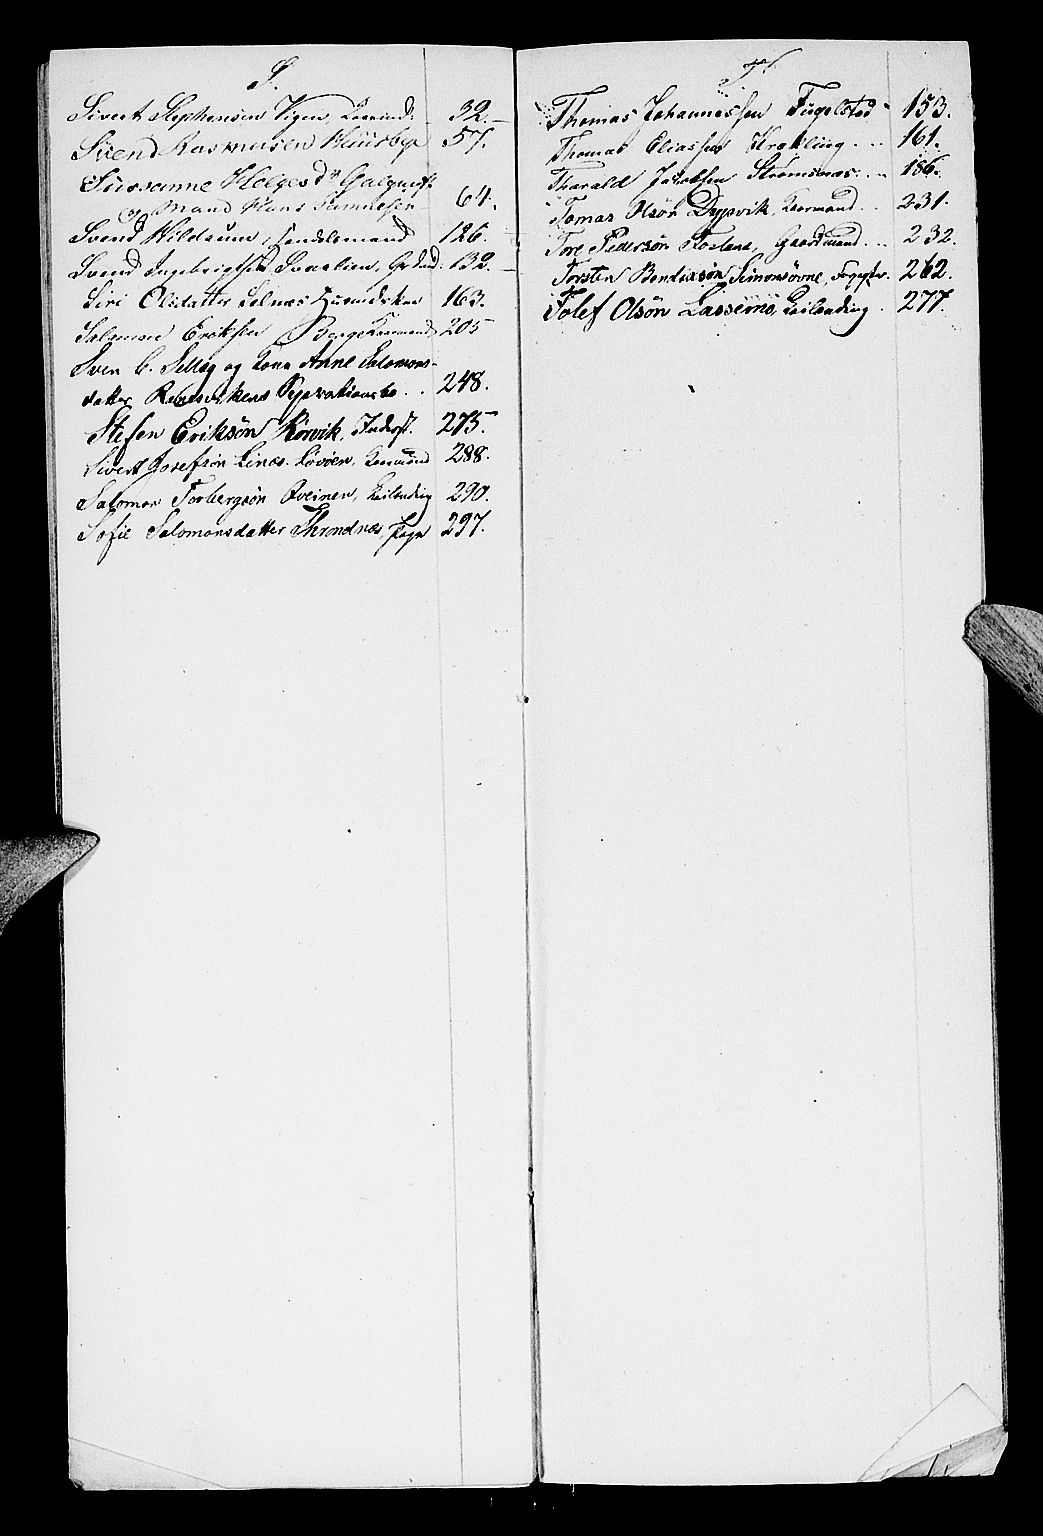 S.
Sivert Stephensen Vigen, Kaarmd. 32.
Svend Rasmusen Huusbye 57.
Sussanne Helgesdr
og Mand Hans Samuelsen 64.
Svend Wildsum, Handelsmand 126.
Svend Ingebrigtsen Svaalien, Grdmd. 132.
Siri Olsdatter Selnæs Huusmdskon 163.
Salomon Eriksen Berge Kaarmand 205
Sven C. Selleg og Kona Anne Salomons-
datter Rensvikens Separationsbo . . 248.
Stefen Eriksön Rörvik, Inderst. 275.
Sivert Josefsön Linæs-Lövöen, Kaarmand 288.
Salomon Torbergsön Qveinen, Leilending 290.
Sofie Salomonsdatter Throndnes, Pige 297.
T.
Thomas Johannessen Fugelsted 153.
Thomas Eliassen Krokling . . . 161.
Tharald Jacobsen Strømsnæs . . . 186.
Tomas Olsön Dypvik, Kaarmand . . 231.
Tore Pedersön Gaardmand . . . 232.
Torsten Bendixsön Simonsövne, 262.
Tolef Olsön Lassemo, Leilending . 277.